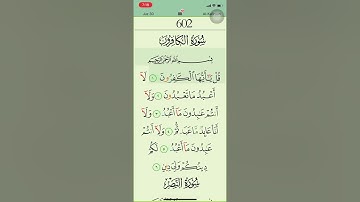 602
سُورَةُ الكَافِرُونَ
بِسْمِ اللَّهِ الرَّحْمَٰنِ الرَّحِيمِ
قُلْ يَٰٓأَيُّهَا ٱلْكَٰفِرُونَ ١ لَآ
أَعْبُدُ مَا تَعْبُدُونَ ٢ وَلَآ
أَنتُمْ عَٰبِدُونَ مَآ أَعْبُدُ ٣ وَلَآ
أَنَا۠ عَابِدٌ مَّا عَبَدتُّمْ ٤ وَلَآ أَنتُمْ
عَٰبِدُونَ مَآ أَعْبُدُ ٥ لَكُمْ
دِينُكُمْ وَلِىَ دِينِ ٦
سُورَةُ النَّصْرِ